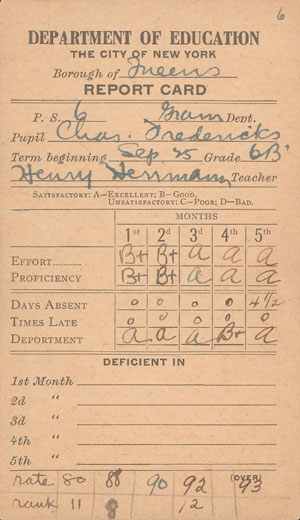 6
DEPARTMENT OF EDUCATION
THE CITY OF NEW YORK
Borough of Queens
REPORT CARD
P. S. 6 Gram Dept.
Pupil Chas. Fredericks
Term beginning Sep 25 Grade 6B
Henry Herrmann, Teacher
SATISFACTORY: A—EXCELLENT; B—GOOD.
UNSATISFACTORY: C—POOR; D—BAD.
MONTHS
1st 2d 3d 4th 5th
EFFORT B+ B+ A A A
PROFICIENCY B+ B+ A A A
DAYS ABSENT 0 0 0 0 4 1/2
TIMES LATE 0 0 0 0 0
DEPORTMENT A A A B+ A
DEFICIENT IN
1st Month
2d "
3d "
4th "
5th "
(OVER)
rate 80 88 90 92 93
rank 11 8 12